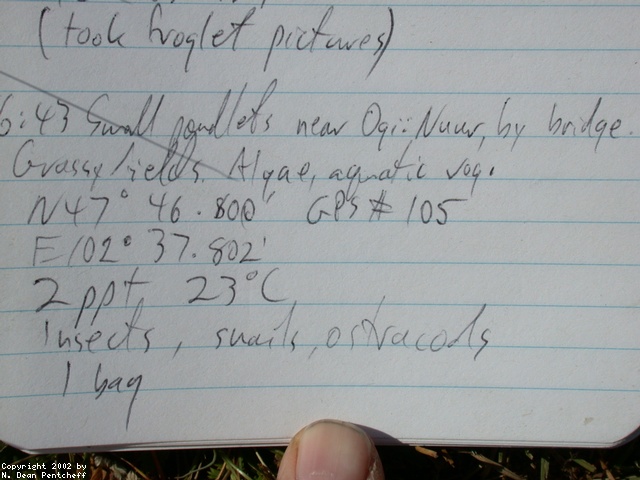 (took froglet pictures)
6:43 Small pondlets near Ogii Nuur, by bridge.
Grassy fields. Algae, aquatic veg.
N47° 46.800' GPS # 105
E102° 37.802'
2ppt, 23°C
Insects, snails, ostracods
1 bag
Copyright 2002 by
N. Dean Pentcheff